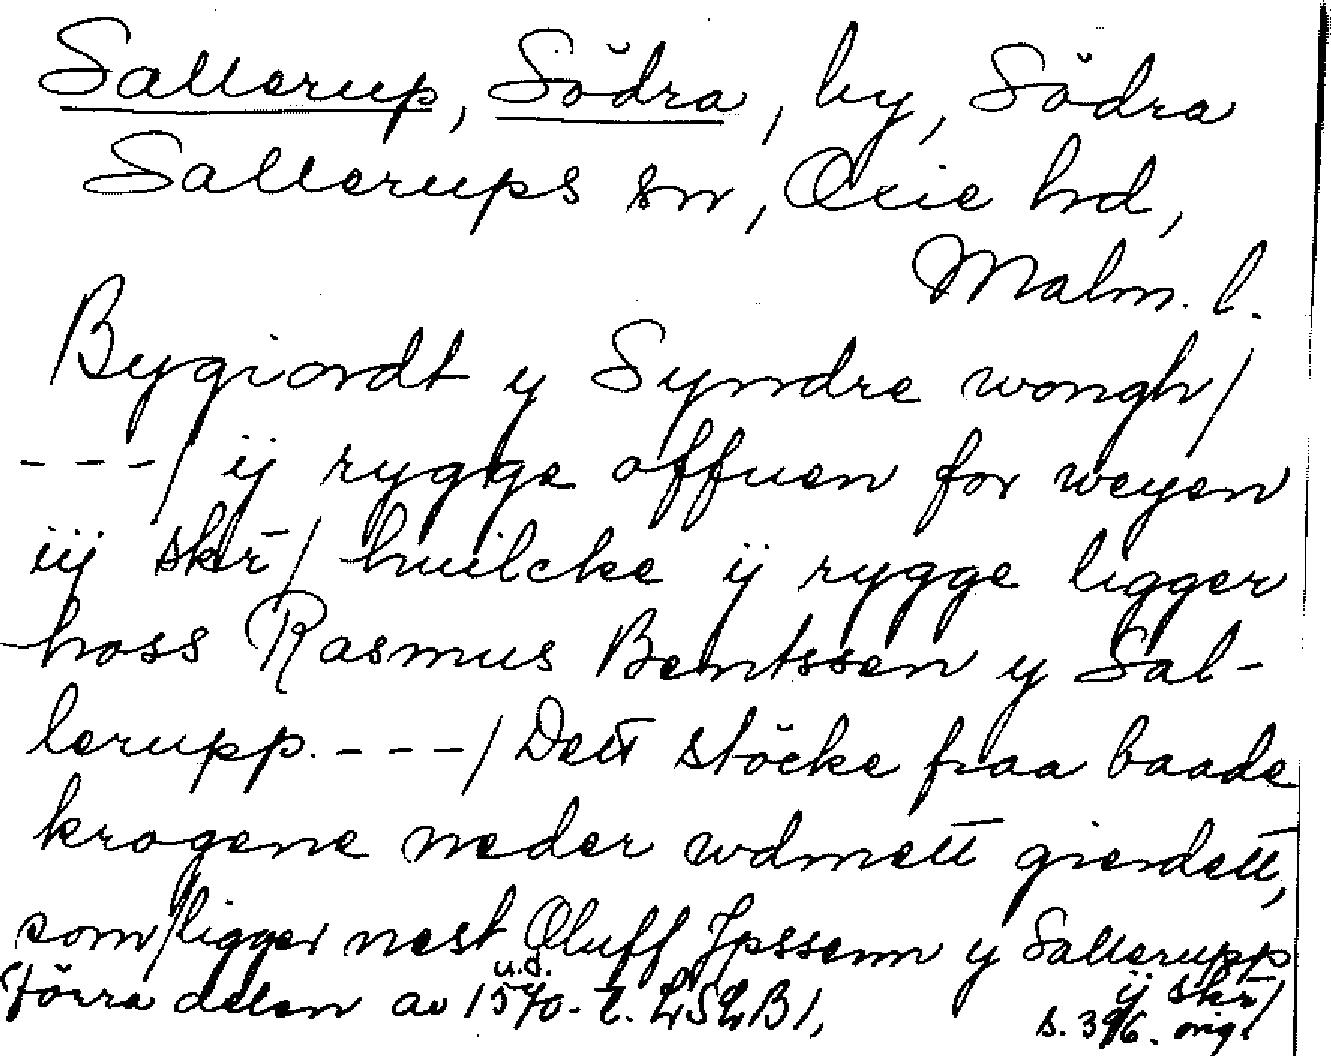 Sallerup, Södra, by, Södra
Sallerups sn, Oxie hd,
Malm. l.
Bygiordt y Syndre wongh/
---/ ij rygge offuen for weyen
iij skr/ huilcke ij rygge ligger
hoss Rasmus Bentssen y Sal-
lerupp. ---/ Dett stöcke fraa baade
krogene neder wdmett gierdett,
som/ligger nest Oluff Jpssenn y Sallerupp
ij skr/
u.d.
Förra delen av 1570-t. LSLB1,
s. 396. orig.